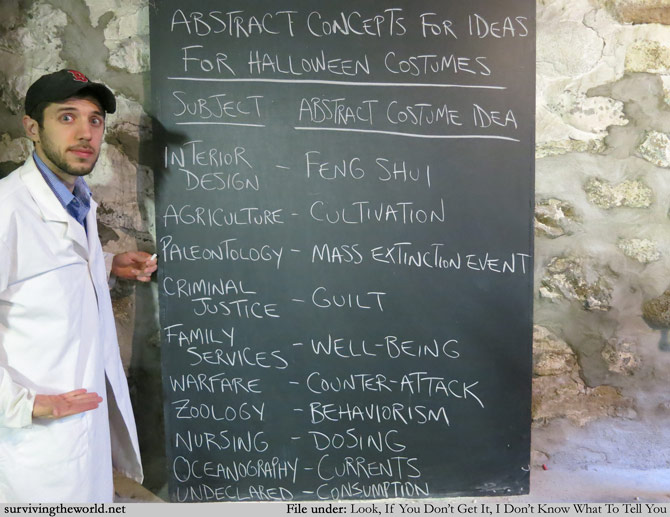 ABSTRACT CONCEPTS FOR IDEAS
FOR HALLOWEEN COSTUMES
SUBJECT ABSTRACT COSTUME IDEA
INTERIOR
DESIGN - FENG SHUI
AGRICULTURE - CULTIVATION
PALEONTOLOGY - MASS EXTINCTION EVENT
CRIMINAL
JUSTICE - GUILT
FAMILY
SERVICES - WELL-BEING
WARFARE - COUNTER-ATTACK
ZOOLOGY - BEHAVIORISM
NURSING - DOSING
OCEANOGRAPHY - CURRENTS
UNDECLARED - CONSUMPTION
survivingtheworld.net File under: Look, If You Don't Get It, I Don't Know What To Tell You